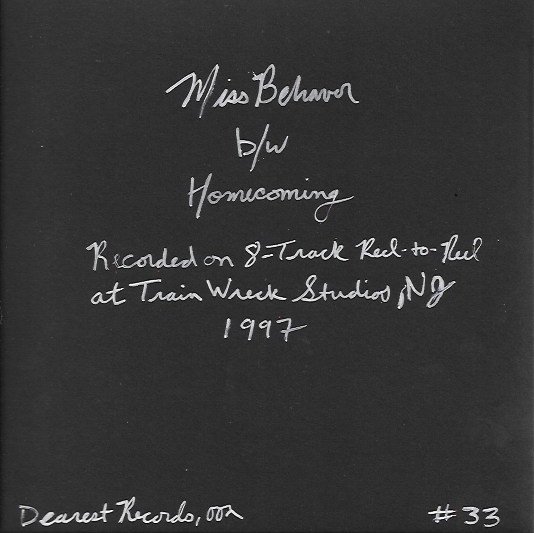 Miss Behavor
b/w
Homecoming
Recorded on 8-Track Reel-to-Reel
at Train Wreck Studios, NJ
1997
Dearest Records, 002
#33